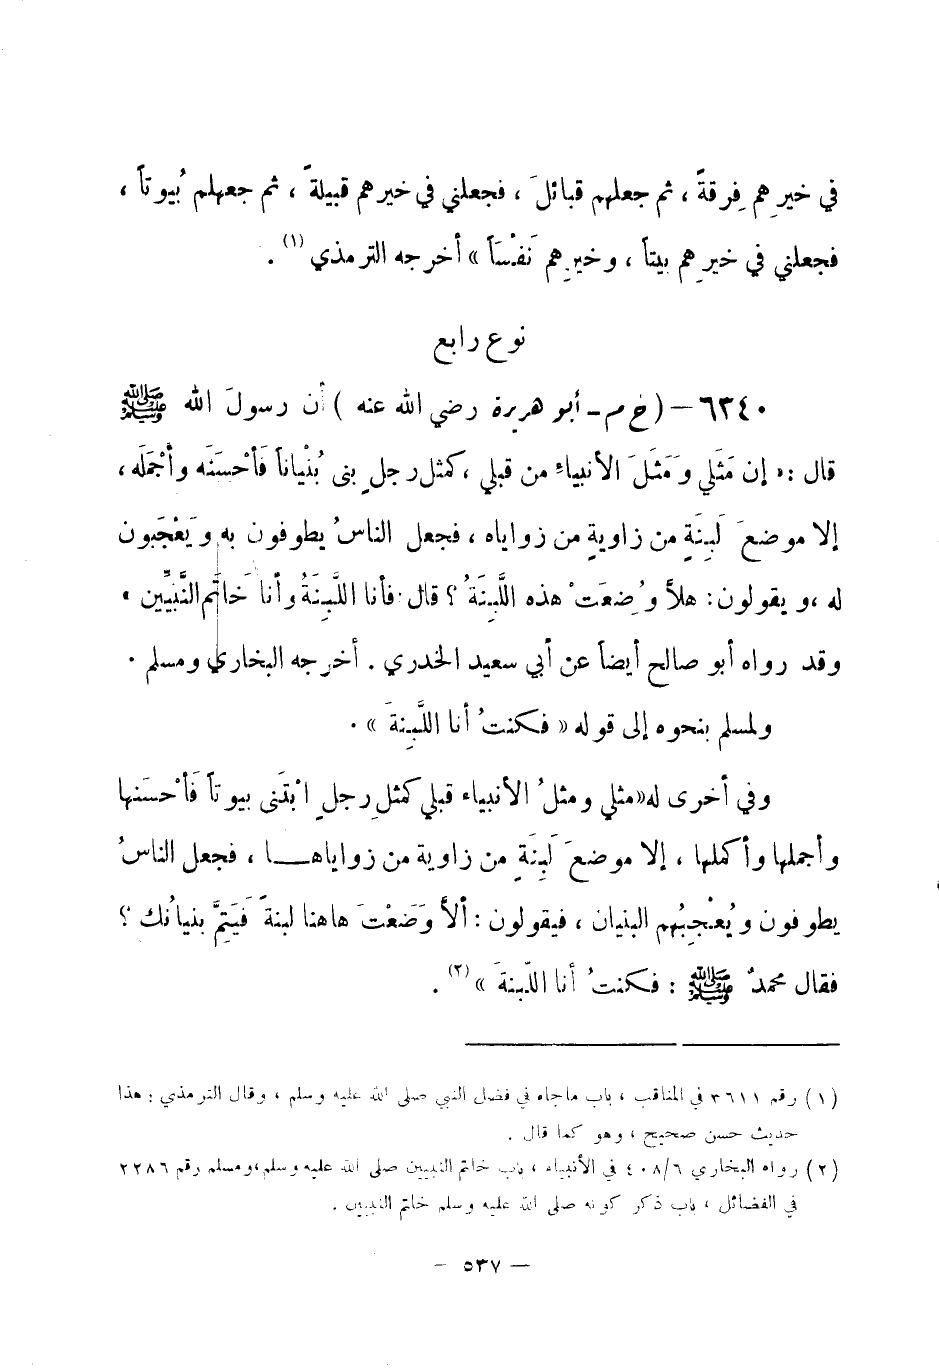 في خيرِهم فِرقةً ، ثم جعلهم قبائلَ ، فجعلني في خيرهم قبيلةً ، ثم جعهلم بُيوتاً ،
فجعلني في خيرِهم بيتاً ، وخيرِهم نَفْسَاً » أخرجه الترمذي (١) .
نوع رابع
٦٣٤٠ – ( خ م – أبو هريرة رضي الله عنه ) أن رسولَ الله ﷺ
قال : « إن مَثَلي وَمَثَلَ الأنبياءِ من قبلي ، كمثل رجلٍ بنى بُنْياناً فَأحْسَنَه وأجْمَلَه ،
إلا موضعَ لَبِنَةٍ من زاويةٍ من زواياه ، فجعل الناسُ يطوفون به وَيَعْجَبون
له ، ويقولون : هلاَّ وُضِعَتْ هذه اللَّبِنَةُ ؟ قال : فأنا اللَّبِنَةُ وأنا خَاتَم النَّبيِّين »
وقد رواه أبو صالح أيضاً عن أبي سعيد الخدري . أخرجه البخاري ومسلم .
ولمسلم بنحوه إلى قوله « فكنتُ أنا اللَّبِنةَ » .
وفي أخرى له « مثلي ومثلُ الأنبياء قبلي كمثلِ رجلٍ ابْتَنى بيوتاً فَأحْسَنها
وأجملها وأكملها ، إلا موضعَ لَبِنَةٍ من زاوية من زواياهـا ، فجعل الناسُ
يطوفون ويُعْجِبُهم البنيان ، فيقولون : ألاَّ وَضَعْتَ هاهنا لبنةً فَيَتِمَّ بنيانُك ؟
فقال محمدٌ ﷺ : فكنتُ أنا اللَّبنةَ » (٢) .
(١) رقم ٣٦١١ في المناقب ، باب ماجاء في فضل النبي صلى الله عليه وسلم ، وقال الترمذي : هذا
حديث حسن صحيح ، وهو كما قال .
(٢) رواه البخاري ٤٠٨/٦ في الأنبياء ، باب خاتم النبيين صلى الله عليه وسلم ، ومسلم رقم ٢٢٨٦
في الفضائل ، باب ذكر كونه صلى الله عليه وسلم خاتم النبيين .
– ٥٣٧ –